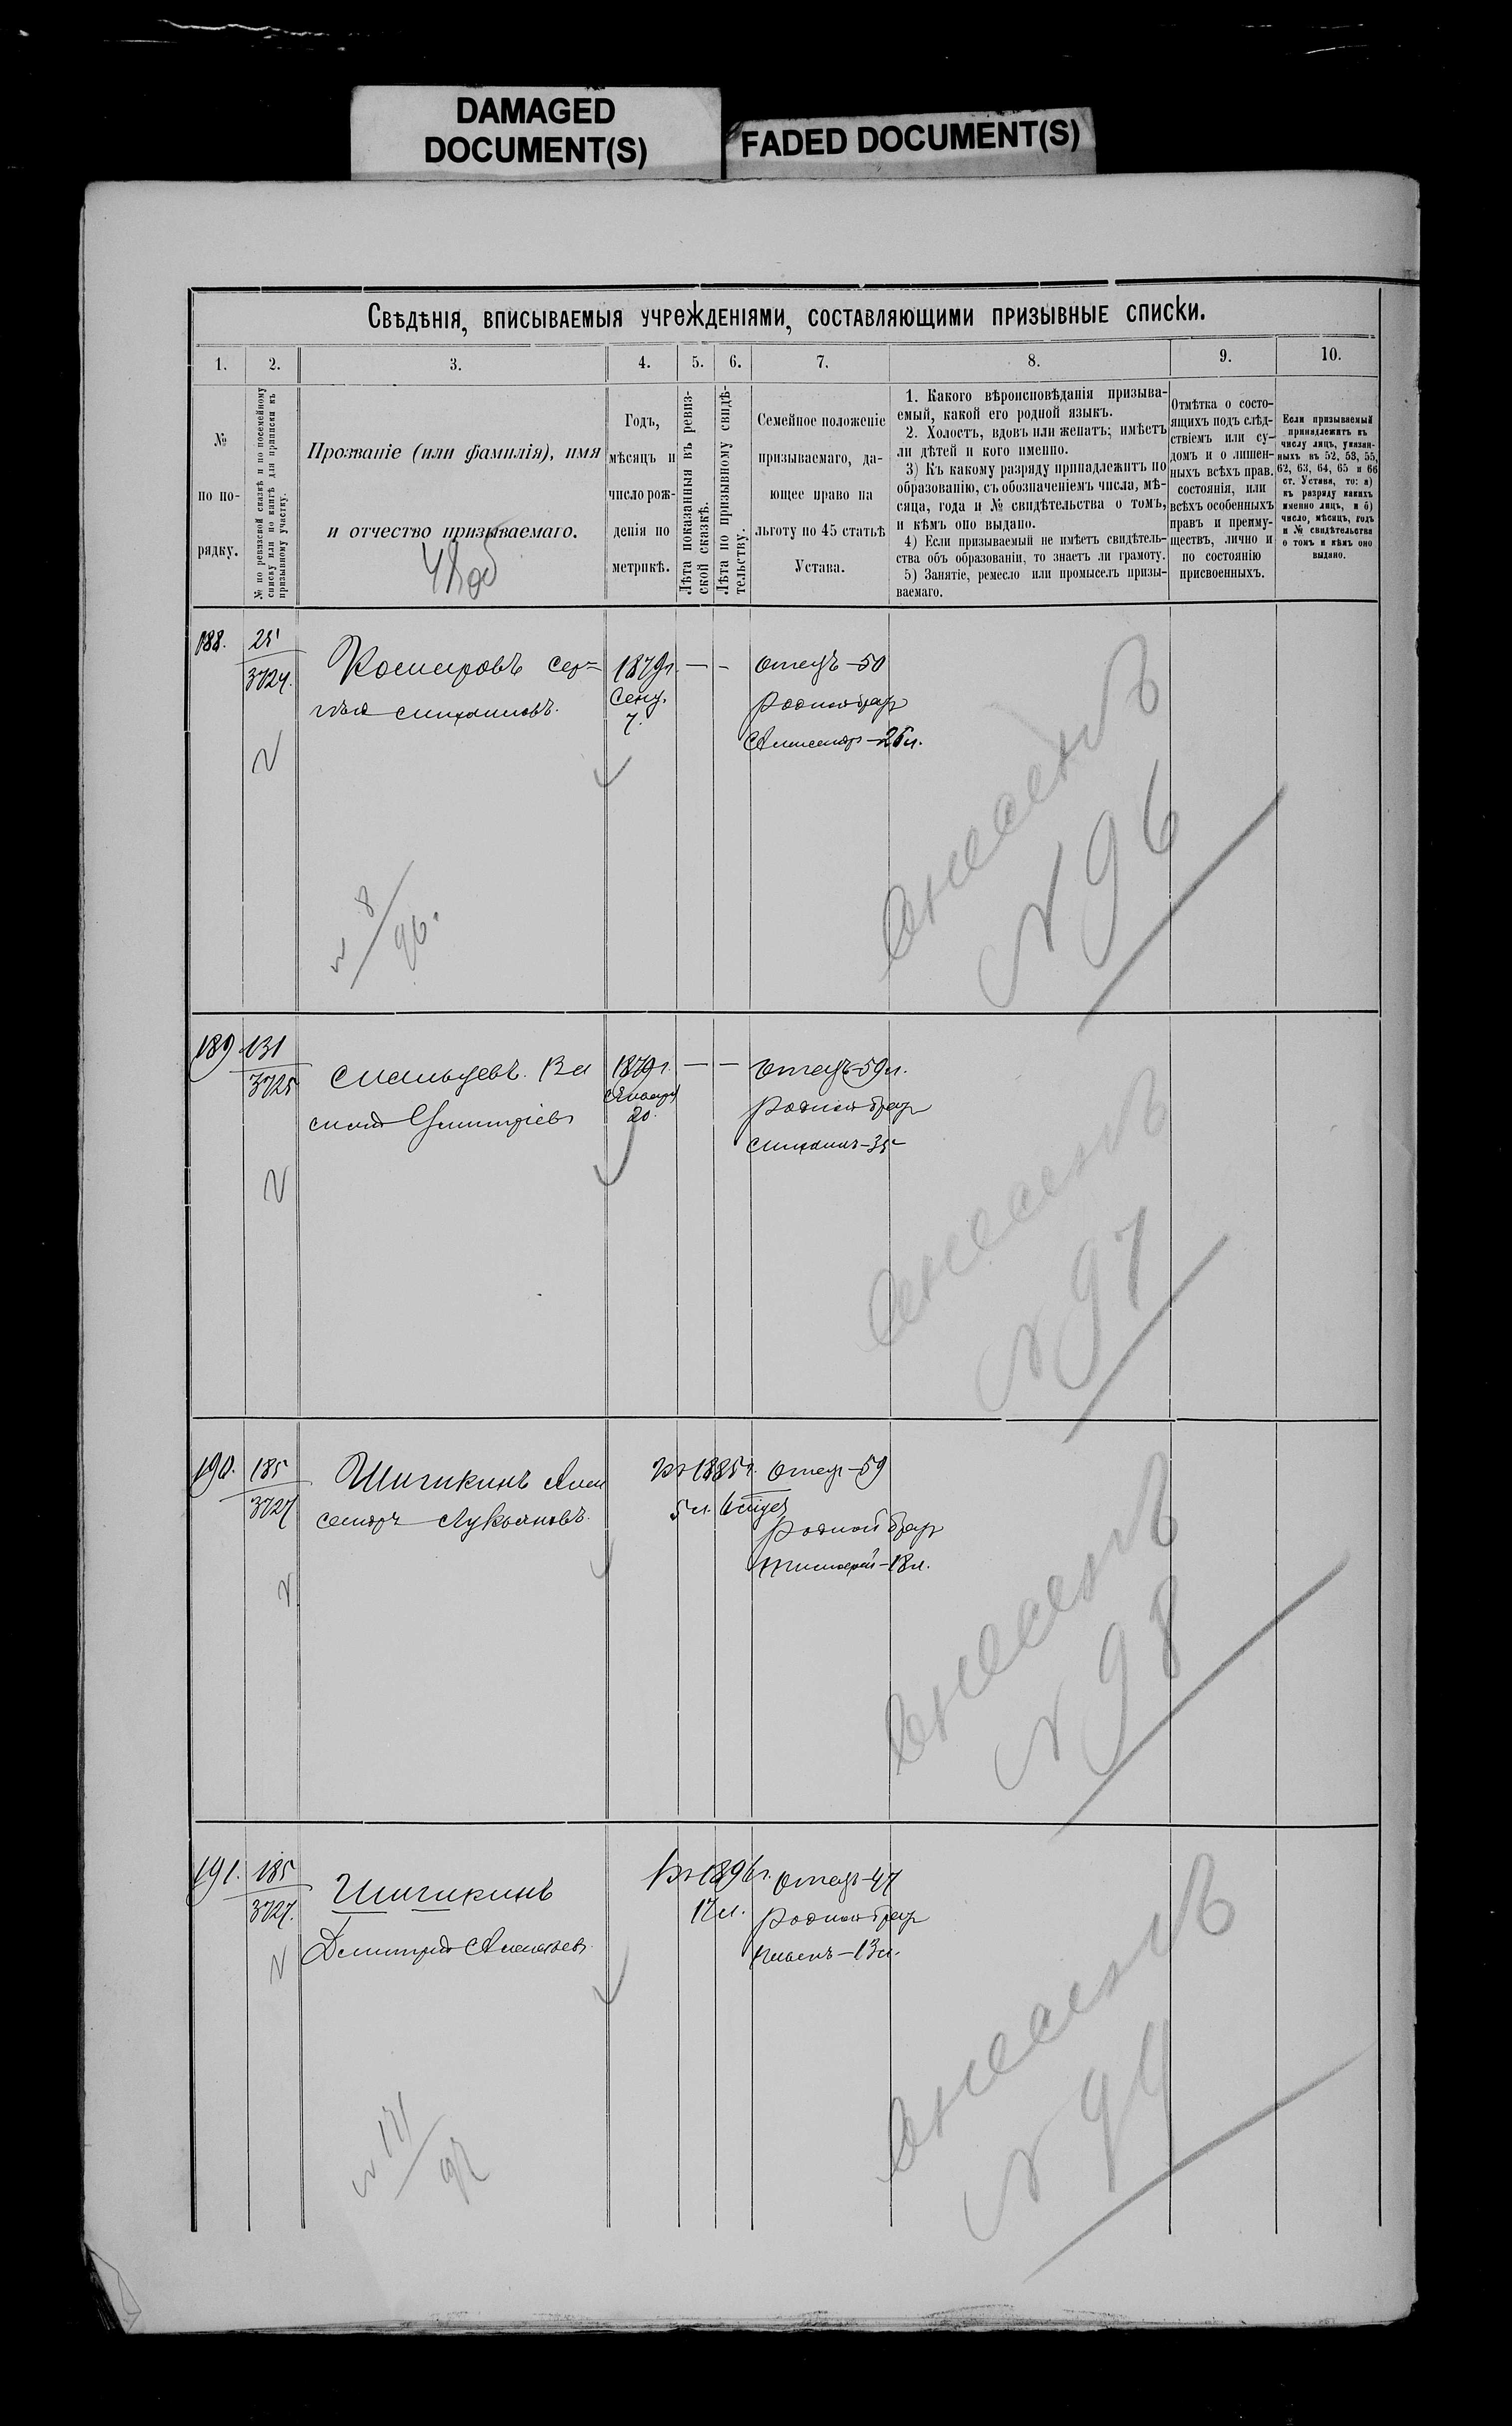 DAMAGED
DOCUMENT(S)
FADED DOCUMENT(S)
Свѣдѣнія, вписываемыя учрежденіями, составляющими призывные списки.
1. 2. 3. 4. 5. 6. 7. 8. 9. 10.
№
по по-
рядку.
№ по ревизской сказкѣ и по посемейному
списку или по книгѣ для приписки къ
призывному участку.
Прозваніе (или фамилія), имя
и отчество призываемаго.
Годъ,
мѣсяцъ и
число рож-
денія по
метрикѣ.
Лѣта показанныя въ ревиз-
ской сказкѣ.
Лѣта по призывному свидѣ-
тельству.
Семейное положеніе
призываемаго, да-
ющее право на
льготу по 45 статьѣ
Устава.
1. Какого вѣроисповѣданія призыва-
емый, какой его родной языкъ.
2. Холостъ, вдовъ или женатъ; имѣетъ
ли дѣтей и кого именно.
3) Къ какому разряду принадлежитъ по
образованію, съ обозначеніемъ числа, мѣ-
сяца, года и № свидѣтельства о томъ,
и кѣмъ оно выдано.
4) Если призываемый не имѣетъ свидѣтель-
ства объ образованіи, то знаетъ ли грамоту.
5) Занятіе, ремесло или промыселъ призы-
ваемаго.
Отмѣтка о состо-
ящихъ подъ слѣд-
ствіемъ или су-
домъ и о лишен-
ныхъ всѣхъ прав.
состоянія, или
всѣхъ особенныхъ
правъ и преиму-
ществъ, лично и
по состоянію
присвоенныхъ.
Если призываемый
принадлежитъ къ
числу лицъ, указан-
ныхъ въ 52, 53, 55,
62, 63, 64, 65 и 66
ст. Устава, то: а)
къ разряду какихъ
именно лицъ, и б)
число, мѣсяцъ, годъ
и № свидѣтельства
о томъ и кѣмъ оно
выдано.
188.
25
3724.
Сер=
1879г.
Сент.
7.
— -
отецъ – 50
родной брат
– 26 л.
8
96.
Внесенъ
N 96
189
131
3725
Ва
1879г.
Января
20.
— —
отецъ – 59 л.
родной брат
Михаилъ – 35
Внесенъ
N 97
190.
185
3727
Шишкинъ Алек
сандръ Лукьяновъ.
въ 1885г.
5 л.
отецъ – 59
родной брат
Тимофей – 18 л.
Внесенъ
N 98
191.
185
3727.
Шишкинъ
Дмитрій
въ 1896г.
17 л.
отецъ – 47
родной брат
– 13 л.
Внесенъ
N 99